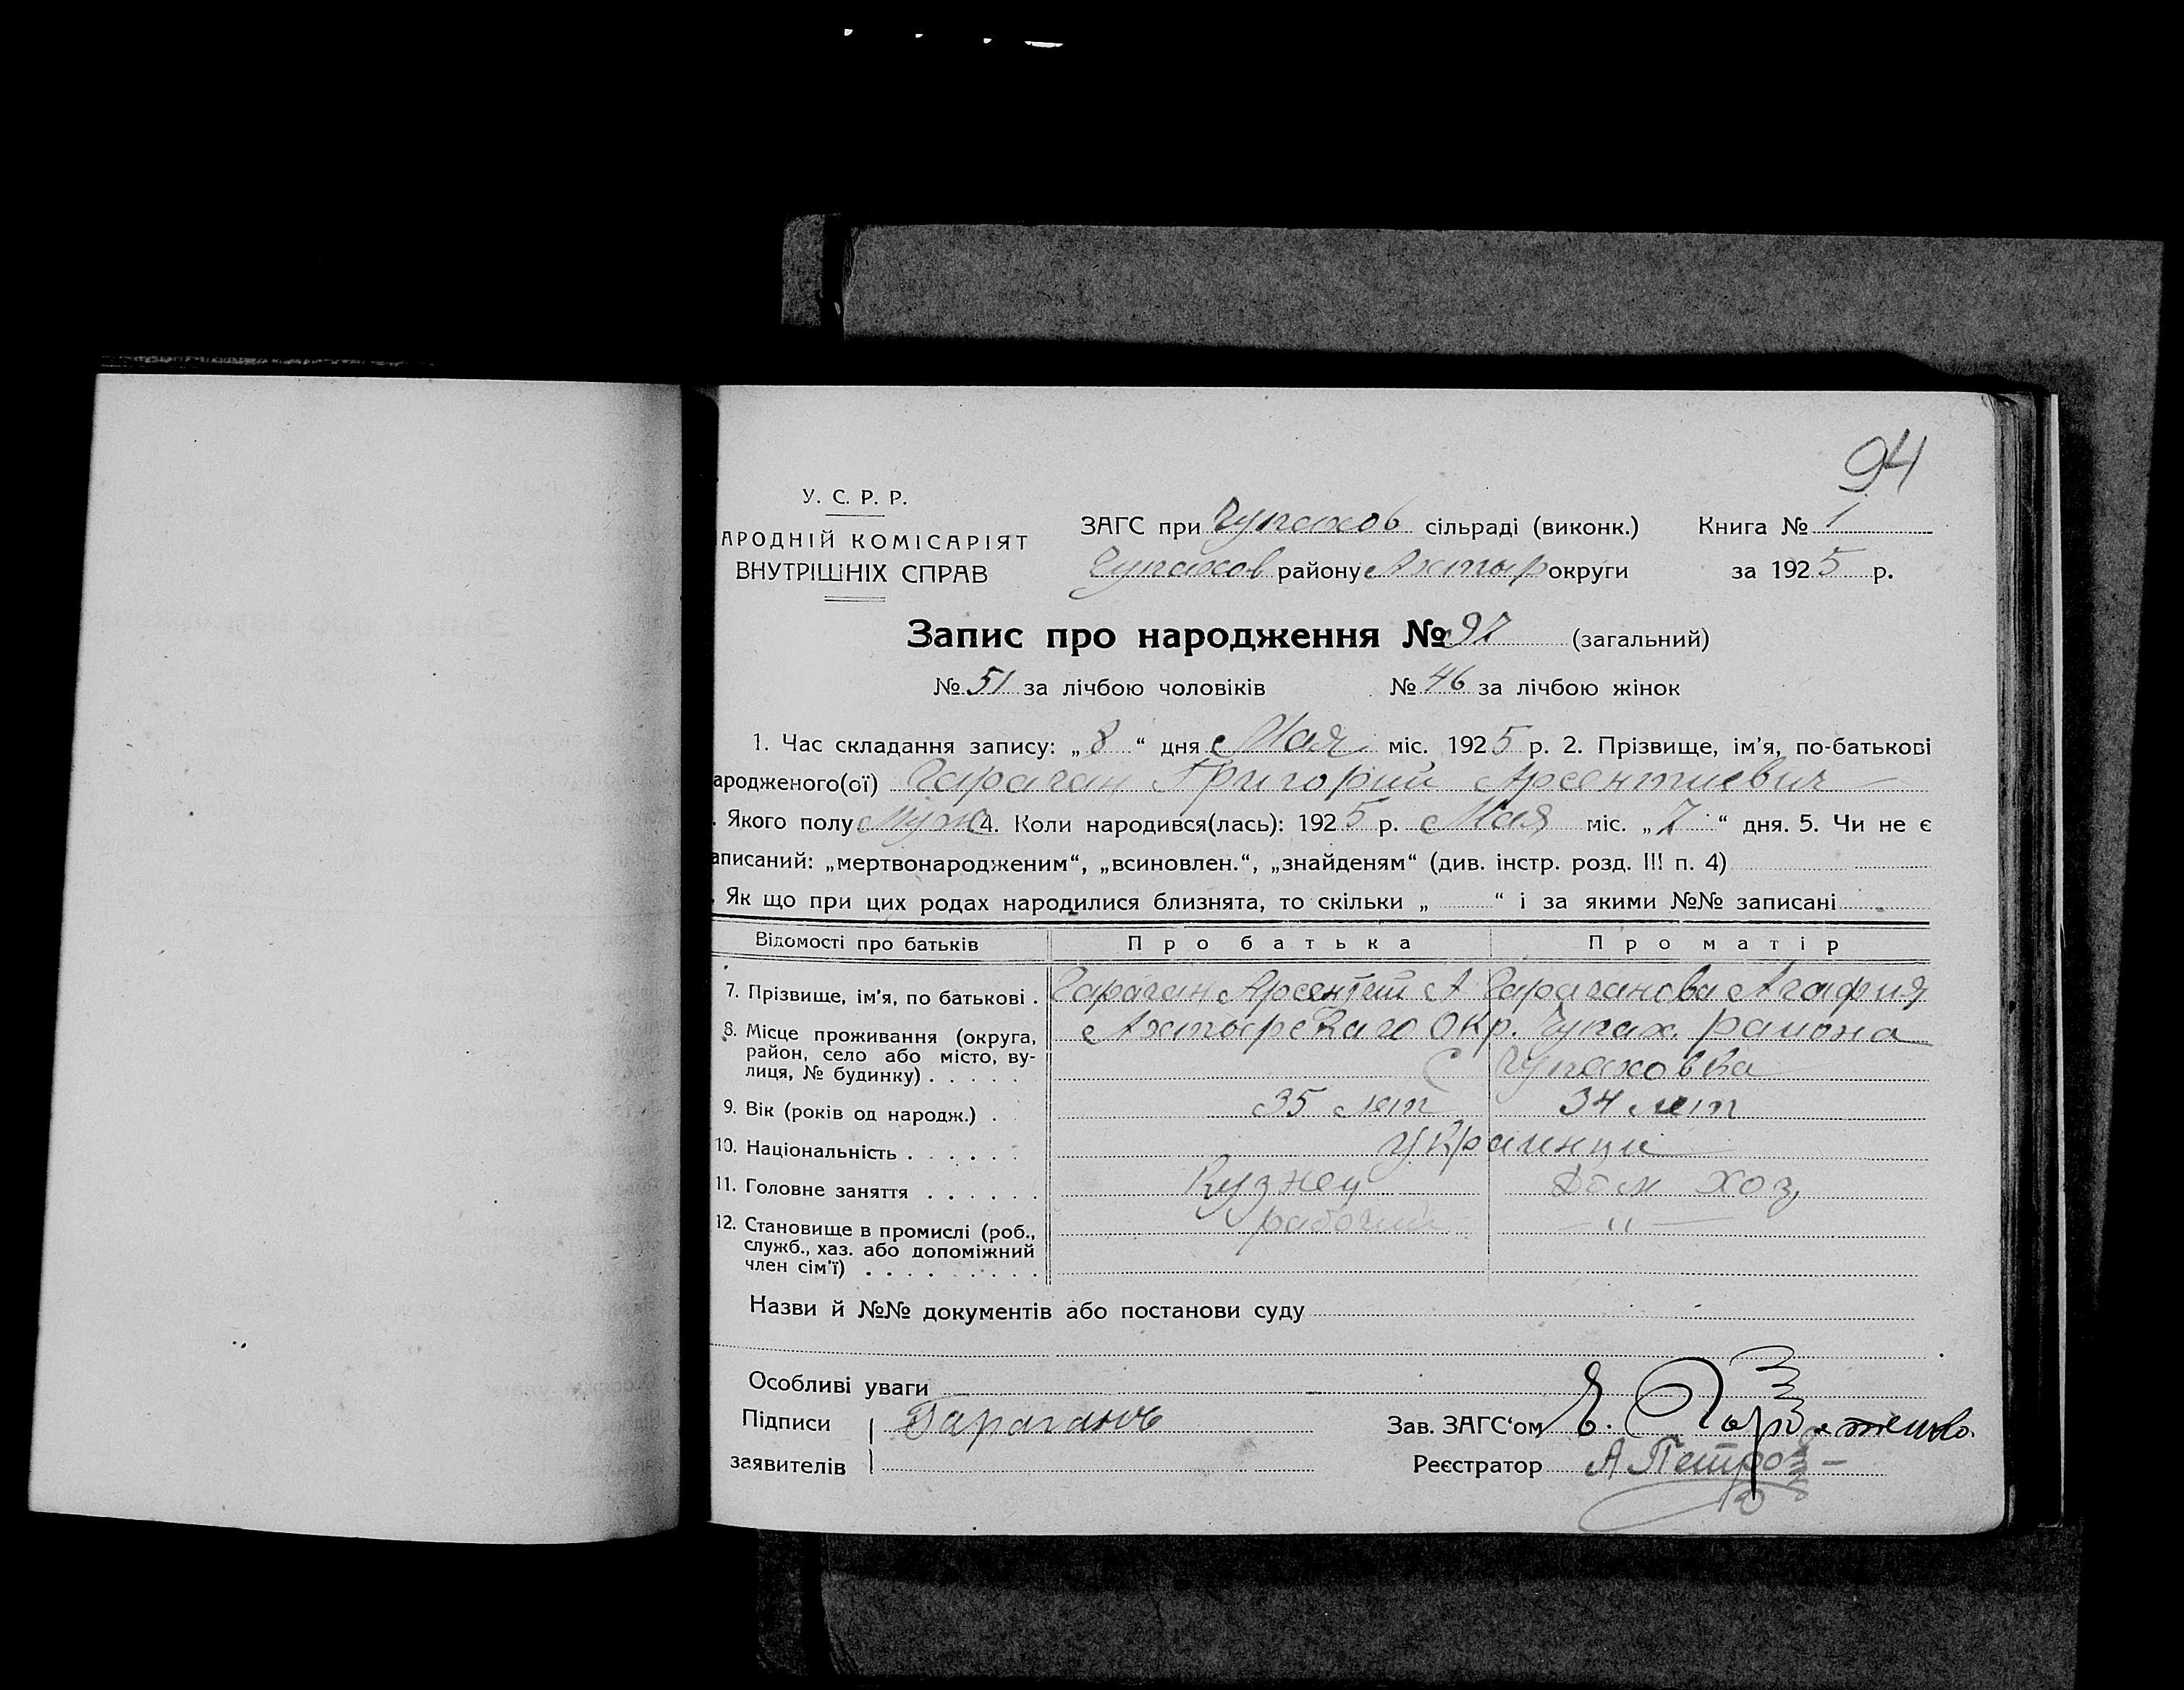 94
У. С. Р. Р.
АРОДНІЙ КОМІСАРІЯТ
ВНУТРІШНІХ СПРАВ
ЗАГС при Чупахов сільраді (виконк.) Книга № 1
Чупахов району Ахтыр округи за 1925 р.
Запис про народження № 97 (загальний)
№ 51 за лічбою чоловіків № 46 за лічбою жінок
1. Час складання запису: „8“ дня Мая міс. 1925 р. 2. Прізвище, ім'я, по-батькові
ародженого(ої) Гараган Григорий Арсентиевич
. Якого полу муж 4. Коли народився(лась): 1925 р. Мая міс. „7“ дня. 5. Чи не є
аписаний: „мертвонародженим“, „всиновлен.“, „знайденям“ (див. інстр. розд. III п. 4)
. Як що при цих родах народилися близнята, то скільки „ “ і за якими №№ записані
Відомості про батьків Про батька Про матір
7. Прізвище, ім'я, по батькові . Гараган Арсентий А Гараганова Агафия
8. Місце проживання (округа, район, село або місто, вулиця, № будинку) . . . . . Ахтырскаго Окр. Чупах. района
С Чупаховка
9. Вік (років од народж.) . 35 лет 34 лет
10. Національність . . . . . . украинци
11. Головне заняття . . . . . . Кузнец Дом Хоз,
12. Становище в промислі (роб., служб., хаз. або допоміжний член сім'ї) . . . . . . . . . рабочий — " —
Назви й №№ документів або постанови суду
Особливі уваги
Підписи Гараганъ Зав. ЗАГС'ом Е.
заявителів Реєстратор А Петро